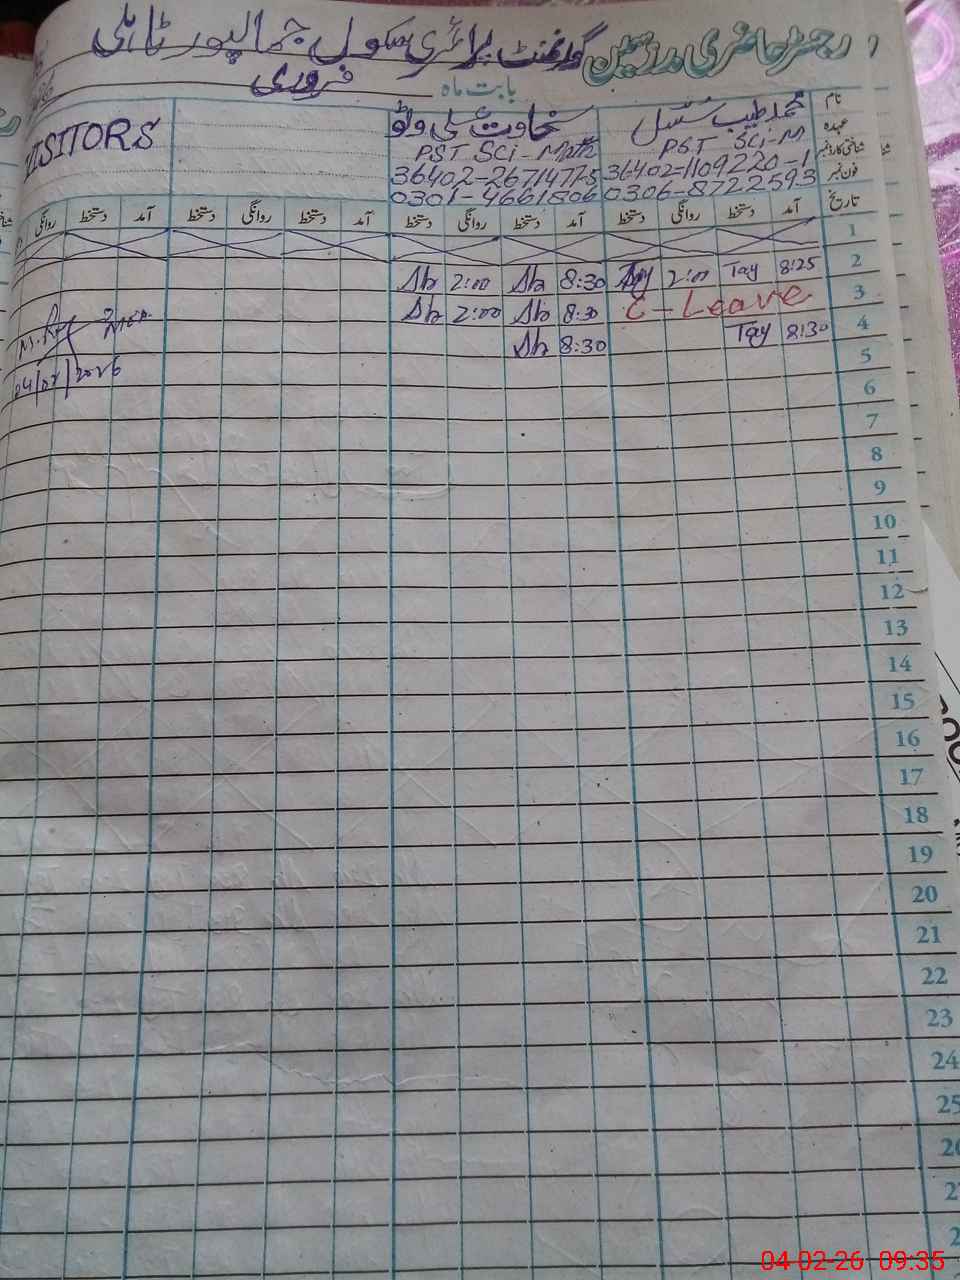 رجسٹر حاضری مدرسین گورنمنٹ پرائمری سکول جمالپور ٹاہلی
بابت ماہ فروری
نام
عہدہ
شناختی کارڈ نمبر
فون نمبر
تاریخ
محمد طیب
PST SCi-M
36402-1109220-1
0306-8722593
سخاوت علی وٹو
PST SCi-Math
36402-2671477-5
0301-4661806
VISITORS
آمد دستخط روانگی دستخط آمد دستخط روانگی دستخط آمد دستخط روانگی دستخط آمد دستخط روانگی
1
2 8:25 Tay 2:00 Tay 8:30 Sh 2:00 Sh
3 C-Leave 8:30 Sh 2:00 Sh
4 8:30 Tay 8:30 Sh
04/02/2026
5
6
7
8
9
10
11
12
13
14
15
16
17
18
19
20
21
22
23
24
25
04-02-26 09:35